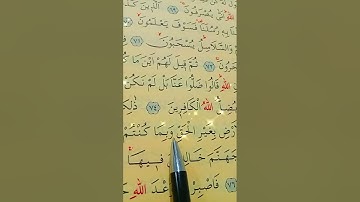 يُصْرَفُونَ ﴿٦٩﴾ اَلَّذِينَ
رُسُلَنَا فَسَوْفَ يَعْلَمُونَ
وَالسَّلَاسِلُ يُسْحَبُونَ ﴿٧١﴾
جَرُونَ ﴿٧٢﴾ ثُمَّ قِيلَ لَهُمْ اَيْنَ مَا
اللّٰهِ قَالُوا ضَلُّوا عَنَّا بَلْ لَمْ نَكُنْ
يُضِلُّ اللّٰهُ الْكَافِرِينَ ﴿٧٤﴾ ذٰلِكُ
رْضِ بِغَيْرِ الْحَقِّ وَبِمَا كُنْتُمْ
جَهَنَّمَ خَالِ فِيهَا
﴿٧٦﴾ فَاصْبِرْ وَعْدَ اللّٰهِ